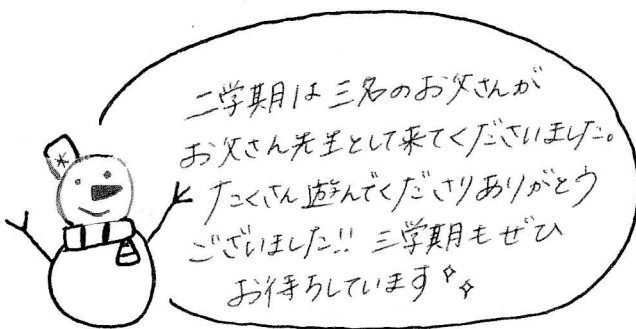 二学期は三名のお父さんが
お父さん先生として来てくださいました。
たくさん遊んでくださりありがとう
ございました!! 三学期もぜひ
お待ちしています